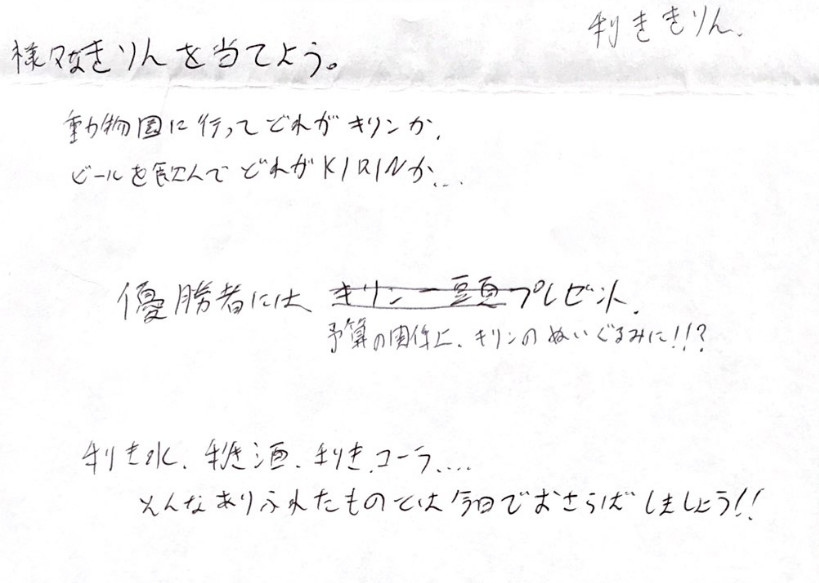 利ききりん.
様々なきりんを当てよう。
動物園に行ってどれがキリンか.
ビールを飲んでどれがKIRINか...
優勝者には キリン一頭プレゼント.
予算の関係上、キリンのぬいぐるみに!!?
利き水、利き酒、利きコーラ....
そんなありふれたものとは今日でおさらばしましょう!!